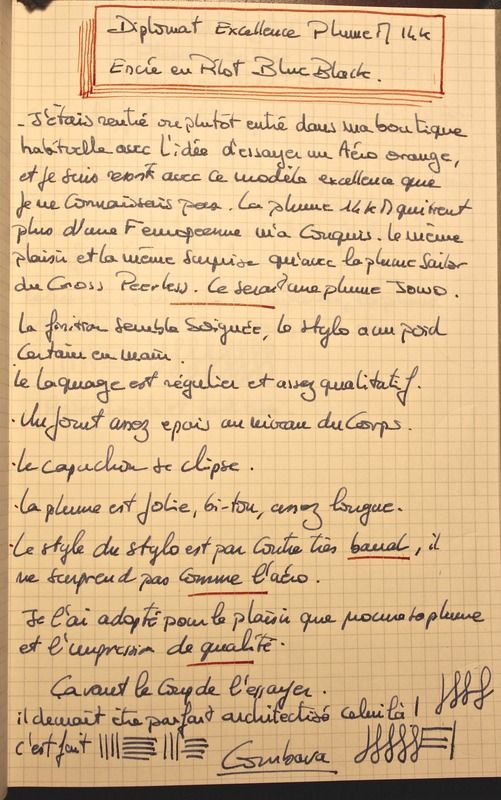 Diplomat Excellence Plume M 14k
Encré en Pilot Blue Black.
- J'étais rentré ou plutôt entré dans ma boutique
habituelle avec l'idée d'essayer un Aéro orange,
et je suis avec ce modèle excellence que
je ne connaissais pas. La plume 14k M qui tient
plus d'une F européenne m'a conquis. le même
plaisir et la même surprise qu'avec la plume Sailor
du Cross Peerless. Ce serait une plume Jowo.
La finition semble soignée, le stylo a un poid
certain en main.
le laquage est régulier et assez qualitatif.
. Un joint assez epais au niveau du Corps.
. le capuchon se clipse.
. La plume est jolie, bi-ton, assez longue.
. Le style du stylo est par contre très banal, il
ne surprend pas comme l'aéro.
Je l'ai adopté pour le plaisir que procure sa plume
et l'impression de qualité.
Ça vaut le coup de l'essayer.
il devrait être parfait architectisé celui là !
c'est fait
Combava